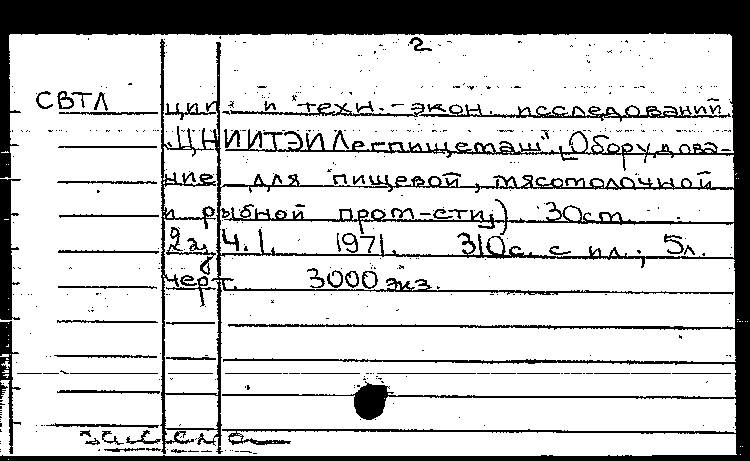 2
СВТЛ ции и техн.-экон. исследований
"ЦНИИТЭИЛегпищемаш". Оборудова-
ние для пищевой, мясомолочной
и рыбной пром-сти). 30см.
Ч.1. 1971. 310с. с ил.; 5л.
черт. 3000 экз.
замена